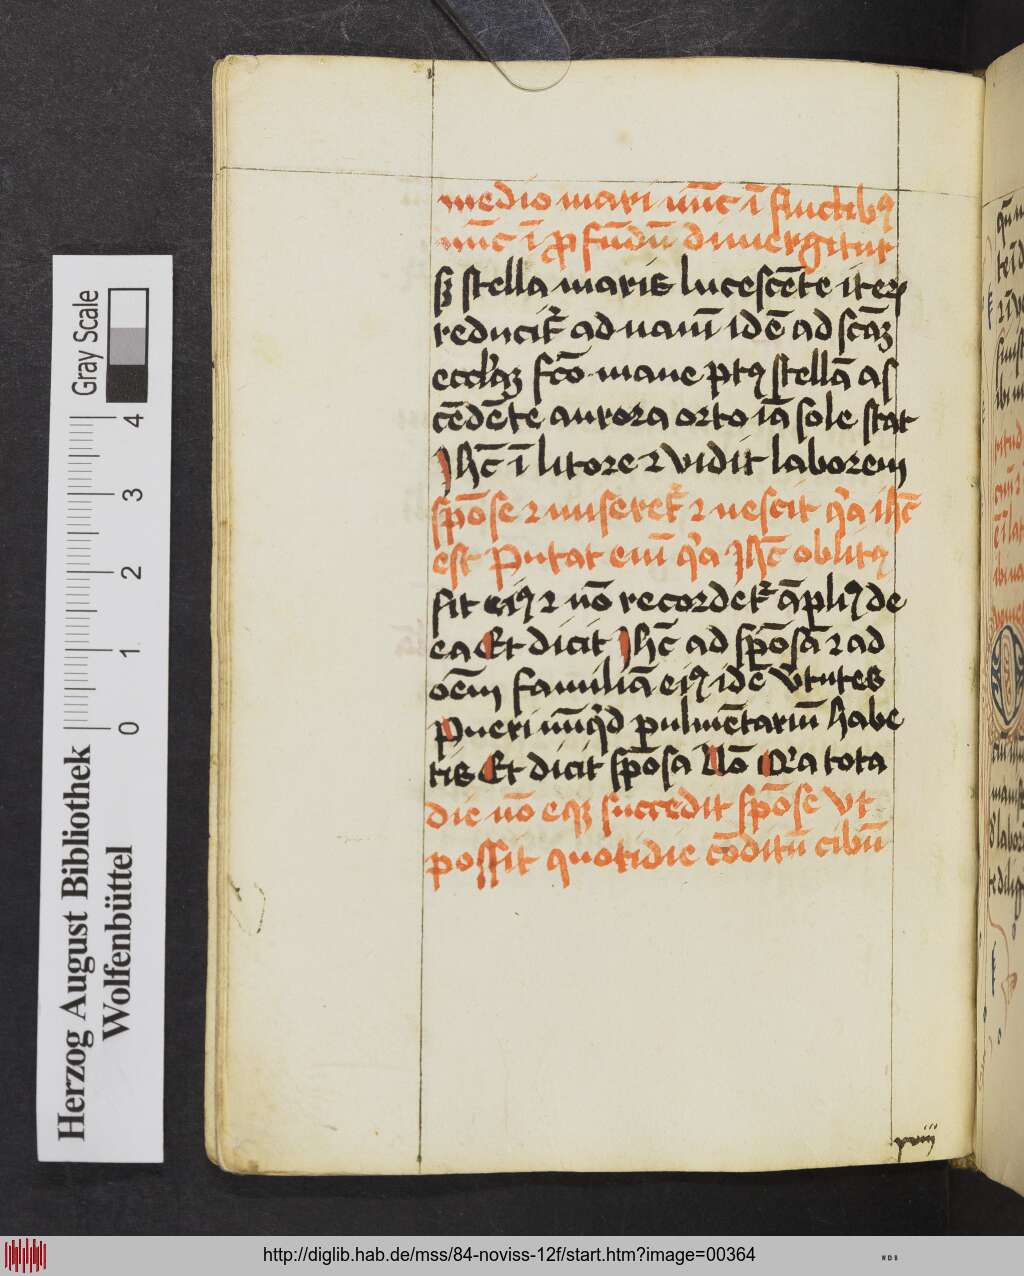 medio mari nūc ī fluctibꝰ
nūc ī ꝓfūdū dimergitur
sꝫ stella maris lucescēte iteꝝ
reducit᷑ ad nauī idē ad scāꝫ
eccl'iaꝫ fcō mane ptꝰ stellā as
cēdēte aurora orto iā sole stat
Jhc̄ ī litore ⁊ vidit laborem
spōse ⁊ miseret᷑ ⁊ nescit qa ihc̄
est Putat eī qa Jhc̄ oblitꝰ
sit eiꝰ ⁊ nō recordet᷑ āpliꝰ de
ea Et dicit Jhc̄ ad spōsā ⁊ ad
oēm familiā eiꝰ idē v̄tutes
Pueri nūqd pulmētariū habe
tis Et dicit spōsa Nō Qa tota
die nō eqꝫ succedit spōse vt
possit quotidie cōditū cibū
xviij
Herzog August Bibliothek
Wolfenbüttel
Gray Scale
0 1 2 3 4
http://diglib.hab.de/mss/84-noviss-12f/start.htm?image=00364